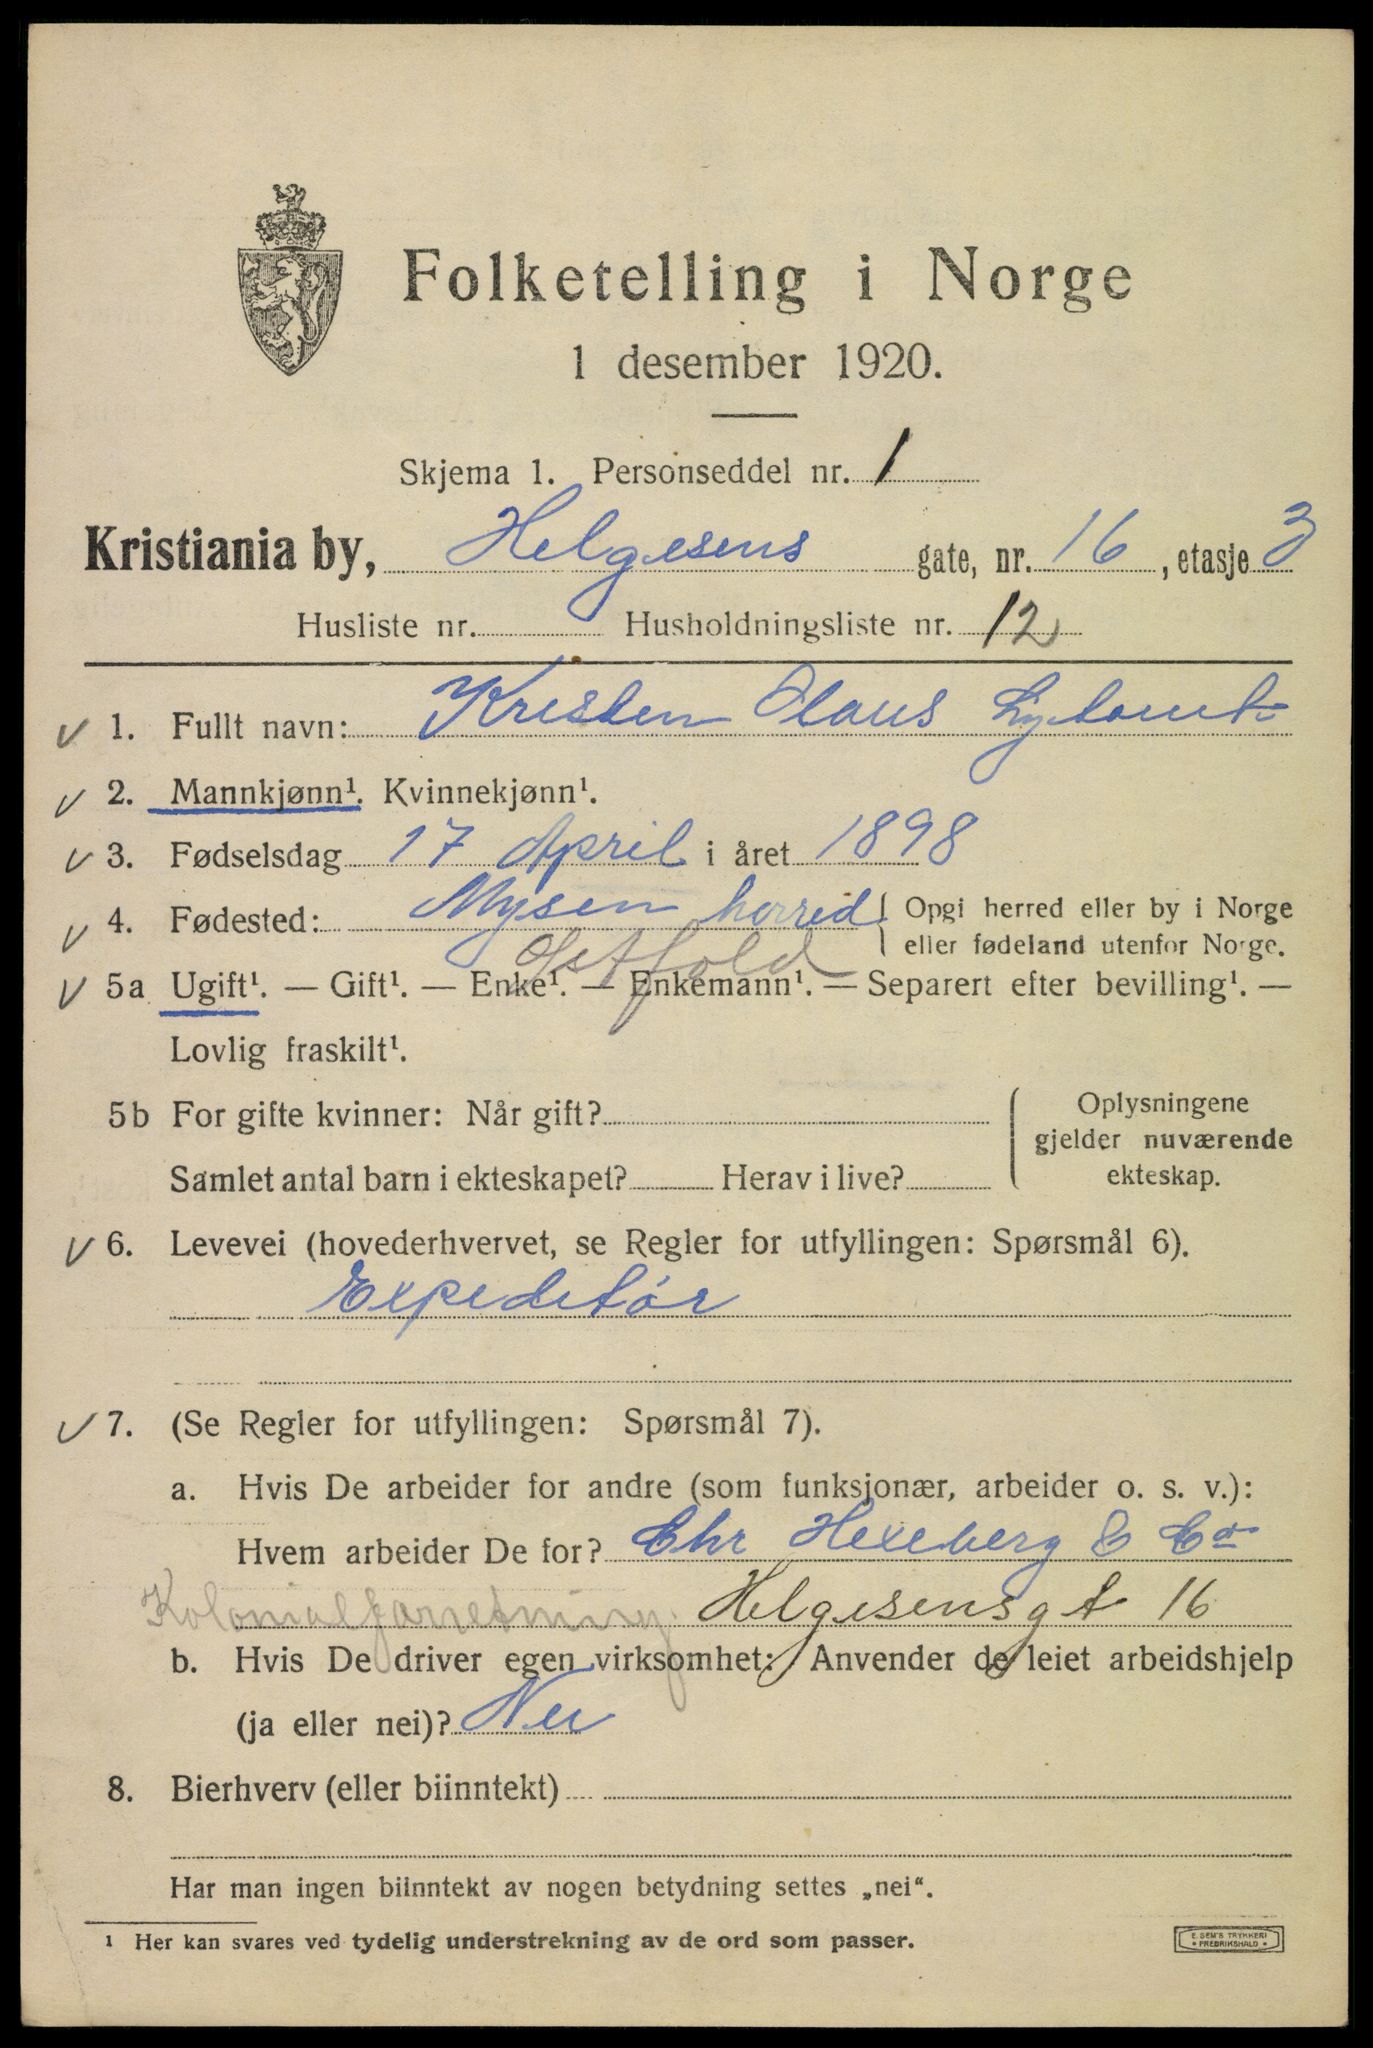 Folketelling i Norge
1 desember 1920.
Skjema 1. Personseddel nr. 1
Kristiania by, Helgesens gate, nr. 16, etasje 3
Husliste nr. Husholdningsliste nr. 12
1. Fullt navn: Kristen Olaus
2. Mannkjønn¹. Kvinnekjønn¹.
3. Fødselsdag 17 April i året 1898
4. Fødested: Mysen herred Opgi herred eller by i Norge
eller fødeland utenfor Norge.
Østfold
5a Ugift¹. — Gift¹. — Enke¹. — Enkemann¹. — Separert efter bevilling¹. —
Lovlig fraskilt¹.
5b For gifte kvinner: Når gift?
Samlet antal barn i ekteskapet? Herav i live?
Oplysningene
gjelder nuværende
ekteskap.
6. Levevei (hovederhvervet, se Regler for utfyllingen: Spørsmål 6).
Expeditør
7. (Se Regler for utfyllingen: Spørsmål 7).
a. Hvis De arbeider for andre (som funksjonær, arbeider o. s. v.):
Hvem arbeider De for? Chr Hexeberg & Co
Kolonialforretning. Helgesensgt 16
b. Hvis De driver egen virksomhet: Anvender de leiet arbeidshjelp
(ja eller nei)? Nei
8. Bierhverv (eller biinntekt)
Har man ingen biinntekt av nogen betydning settes „nei“.
¹ Her kan svares ved tydelig understrekning av de ord som passer.
E. SEM'S TRYKKERI
• FREDRIKSHALD •